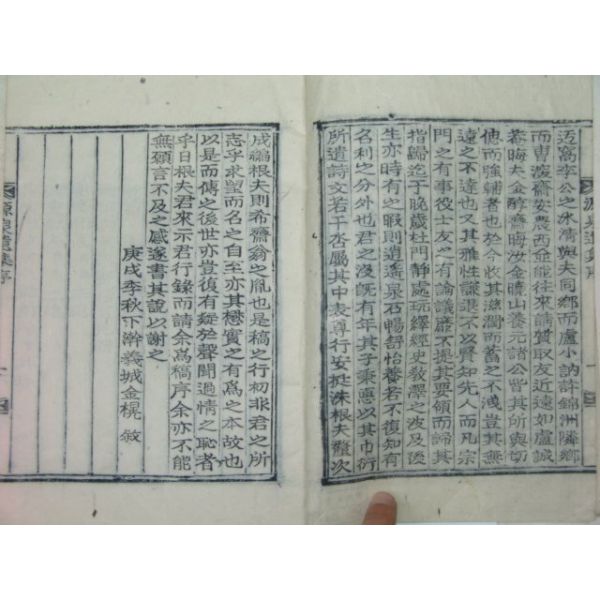 迃窩李公之氷淸與夫同鄕而盧小訥許錦洲隣鄕
而曺深齋安農西金能往來請質取友近遠如盧誠
菴晦夫金醇齋晦汝金晴山養元諸公皆其所與切
偲而強輔者也於今收其滋潤而蓄之不淺豈其無
遠之不達也又其雅性謙退不以賢知先人而凡宗
門之有事役士友之有論議靡不提其要領而歸其
指歸迄于晩歲杜門靜處玩繹經史敎澤之波及後
生亦時有之暇則逍遙泉石暢舒怡養若不復知有
名利之分外也君之沒旣有年其子秉應以其巾衍
所遺詩文若干呇屬其中表尊行安挺洙根夫釐次
成編根夫則希齋翁之胤也是稿之行初非君之所
志乎求望而名之自至亦其懋實之有爲之本故也
以是而傳之後世亦豈復有疑於聲聞過情之恥者
乎日根夫君來示君行錄而請余爲稿序余亦不能
無顧言不及之感遂書其說以謝之
庚戌季秋下澣義城金榥敍
源泉遺集序